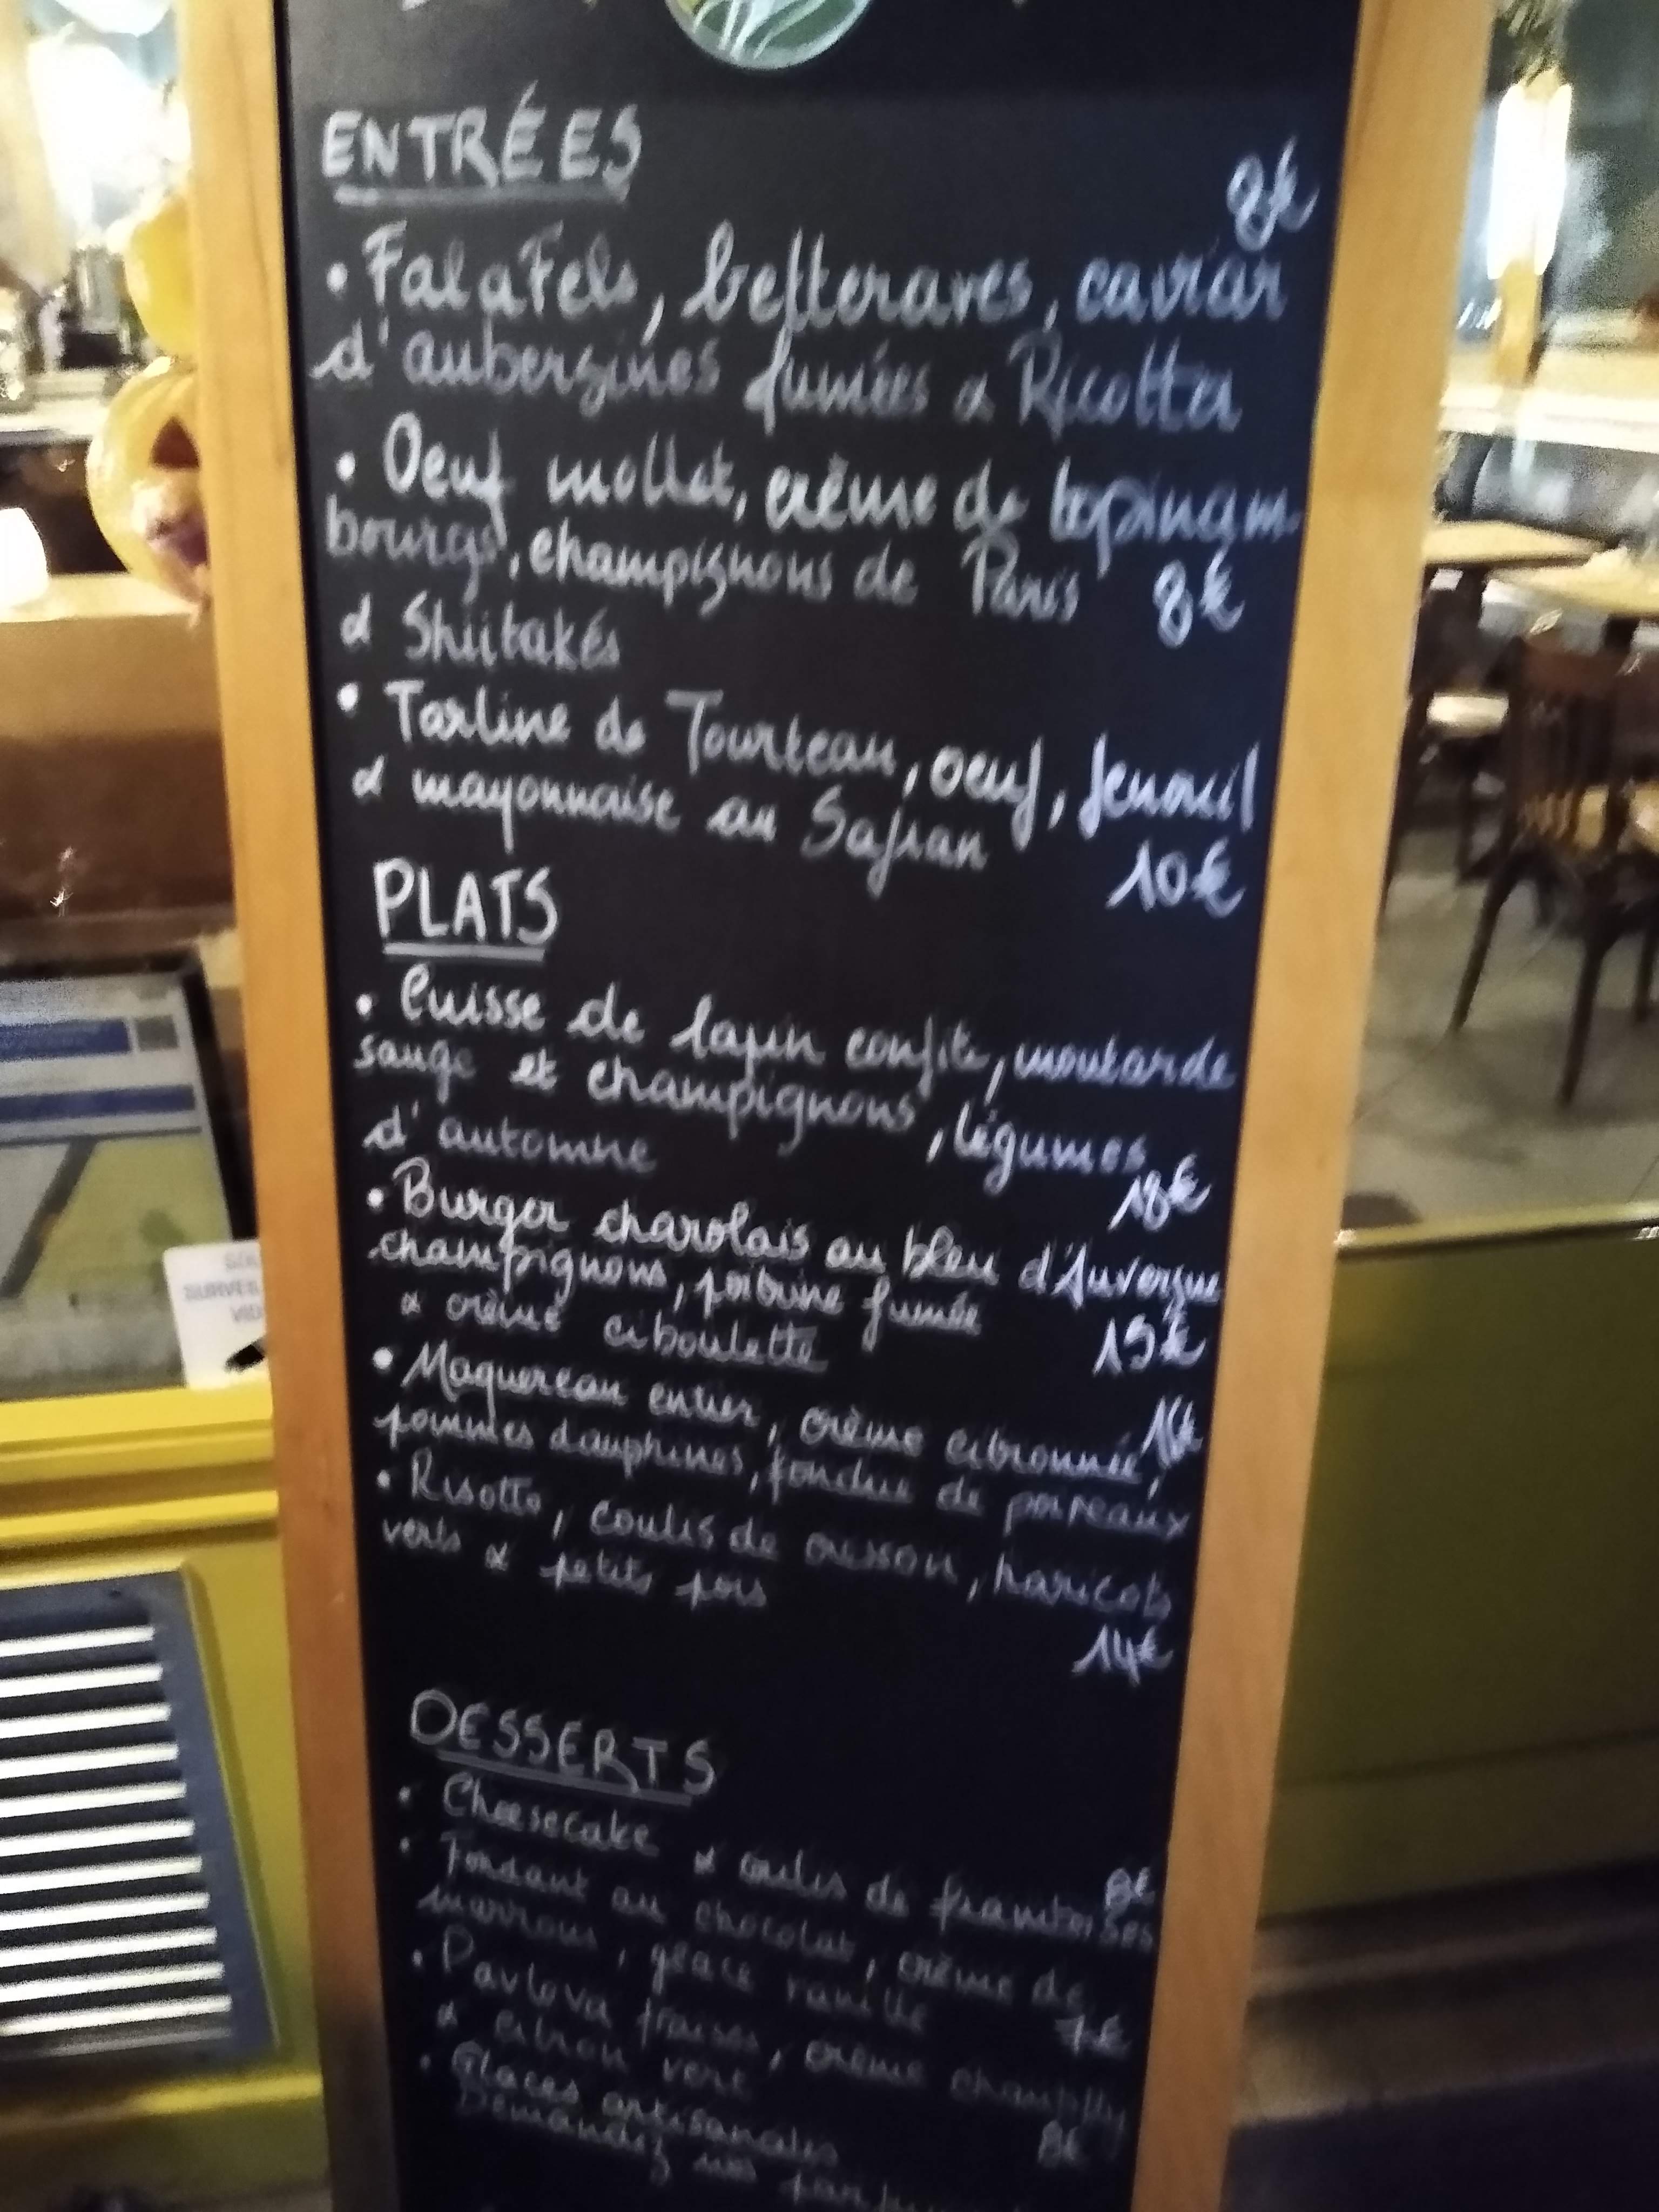 ENTRÉES
8€
• Falafels, betteraves, caviar
d'aubergines fumées & Ricotta
• Oeuf mollet, crème de topinam-
bourgs, champignons de Paris 8€
& Shiitakés
• Tartine de Tourteau, oeuf, fenouil
& mayonnaise au Safran
10€
PLATS
• Cuisse de lapin confite, moutarde
sauge et champignons, légumes
d'automne
18€
• Burger charolais au bleu d'Auvergne
champignons, poitrine fumée
& crème ciboulette
15€
• Maquereau entier, crème citronnée, 16€
pommes dauphines, fondue de poireaux
• Risotto, coulis de cresson, haricots
verts & petits pois
14€
DESSERTS
• Cheesecake & coulis de framboises 8€
• Fondant au chocolat, crème de
marrons, glace vanille 7€
• Pavlova fraises, crème chantilly
& citron vert 8€
• Glaces artisanales
Demandez nos